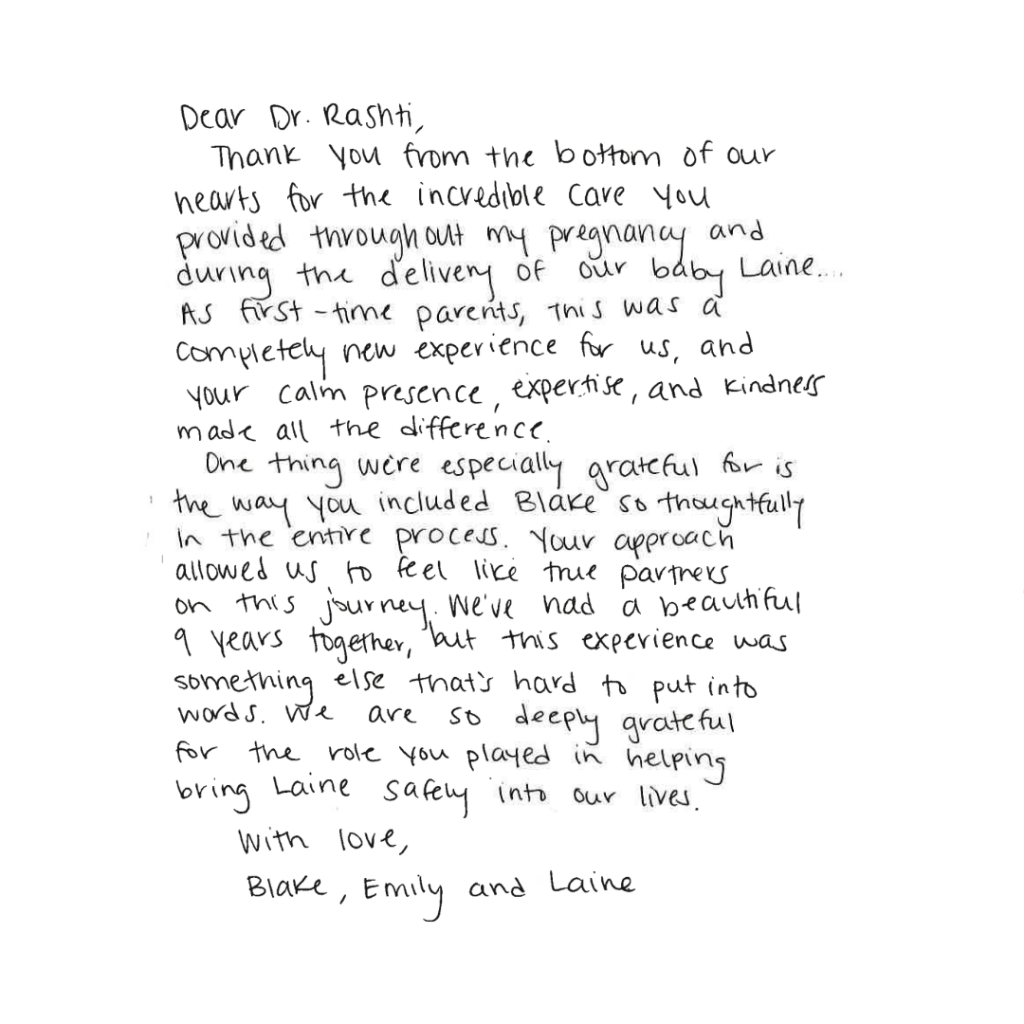 Dear Dr. Rashti,
Thank you from the bottom of our
hearts for the incredible care you
provided throughout my pregnancy and
during the delivery of our baby Laine....
As first-time parents, this was a
completely new experience for us, and
your calm presence, expertise, and kindness
made all the difference.
One thing we're especially grateful for is
the way you included Blake so thoughtfully
in the entire process. Your approach
allowed us to feel like true partners
on this journey. We've had a beautiful
9 years together, but this experience was
something else that's hard to put into
words. We are so deeply grateful
for the role you played in helping
bring Laine safely into our lives.
With love,
Blake, Emily and Laine